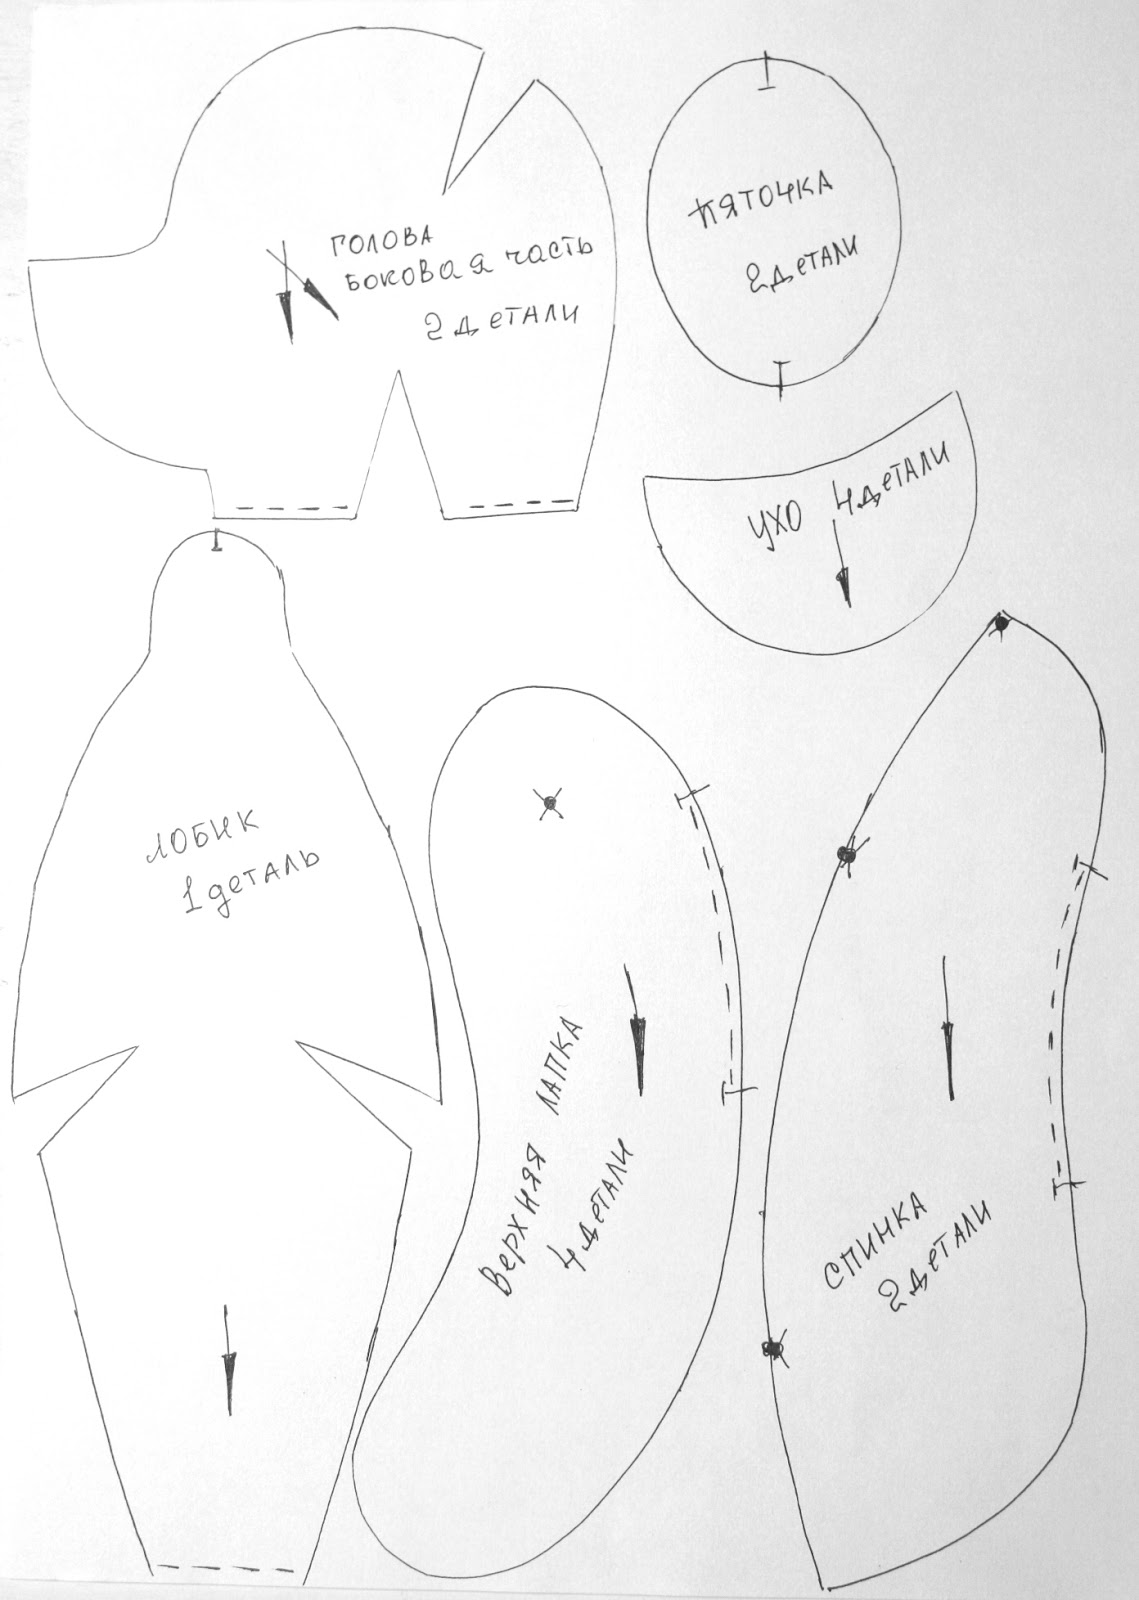 ГОЛОВА
БОКОВАЯ ЧАСТЬ
2 ДЕТАЛИ
ПЯТОЧКА
2 ДЕТАЛИ
УХО 4 ДЕТАЛИ
ЛОБИК
1 ДЕТАЛЬ
ВЕРХНЯЯ ЛАПКА
4 ДЕТАЛИ
СПИНКА
2 ДЕТАЛИ